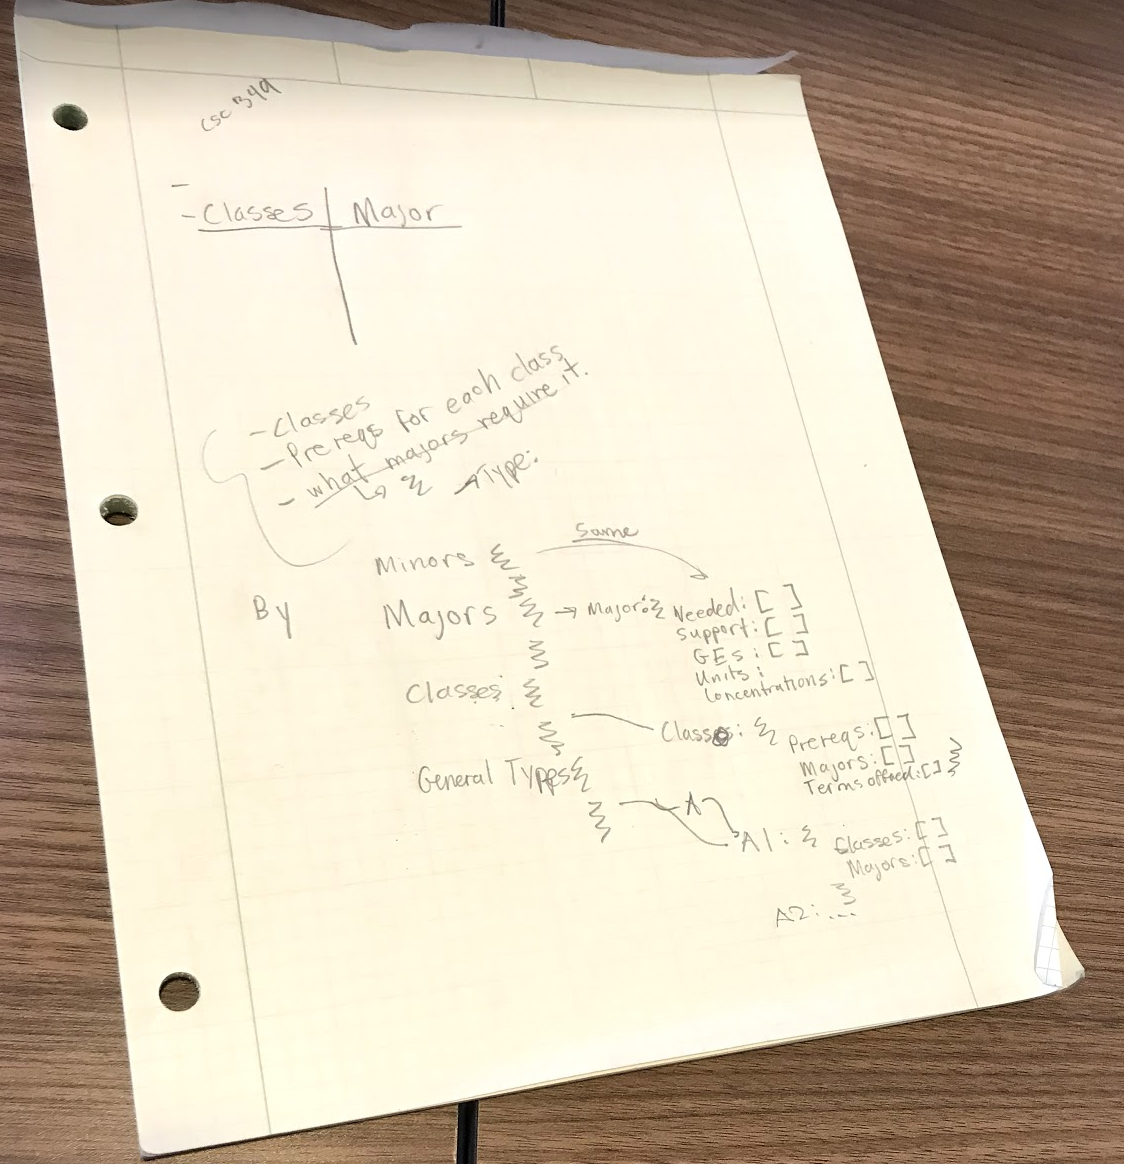 csc 349
-
- Classes | Major
- Classes
- Prereqs for each class
- what majors require it.
↳ { Type:
Same
Minors { }
By Majors { → Major: { Needed: [ ]
Support: [ ]
GEs: [ ]
Units:
Concentrations: [ ]
}
Classes { Class: { Prereqs: [ ]
}
Majors: [ ]
Terms offred: [ ] }
General Types {
} A
A1: { Classes: [ ]
Majors: [ ]
}
A2: ...